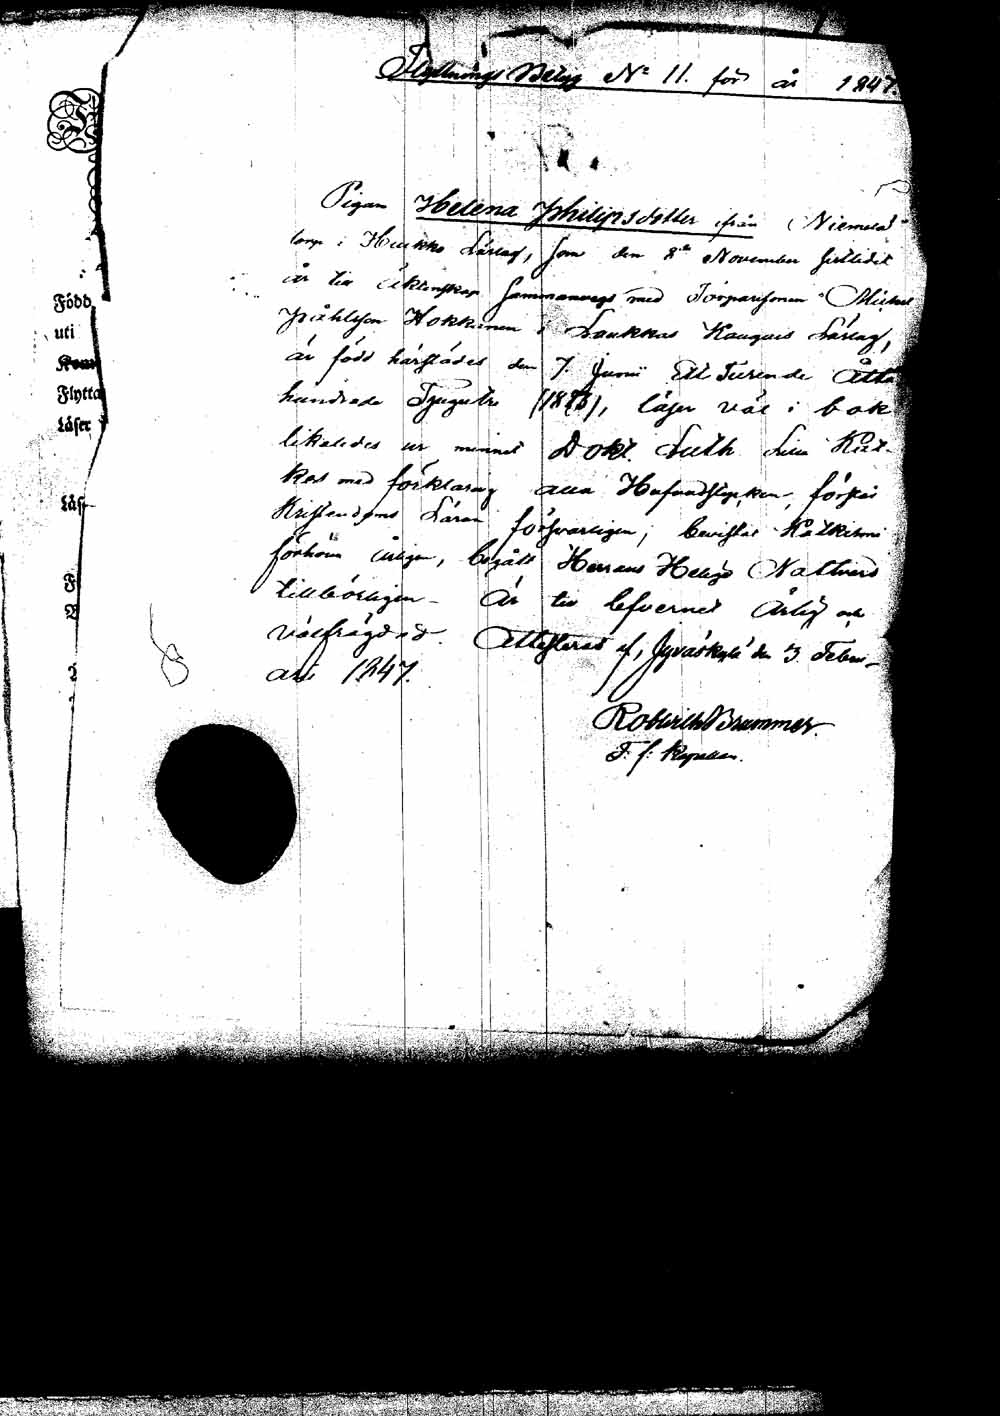 Flyttnings Betyg No 11. för år 1847.
Pigan Helena Philipsdotter ifrån Niemelä
torp i Hukko Lärlag, som den 8de November sistledit
år till äktenskap sammanvigts med Torparesonen Michel
Påhlsson Hokkanen i Laukkas Lärlag,
är född härstädes den 7 Junii Ett Tusende Åtta
hundrade Tjugutre (1823), läser väl i bok
likaledes ur minnet Dokt. Luth. Lilla Kat-
kes med förklaring alla Hufvudstycken, förstår
Kristendoms Läran försvarligen, bevistat Katkismi
förhören årligen, begått Herrans Heliga Nattvard
tillbörligen - Är till lefvernet Ärlig och
välfrägdad. Attesteras af, Jyväskylä den 3 Febru-
arii 1847.
Brummer.
F. f. Kapellan.
Född
uti
Flytta
Läser
Läs-